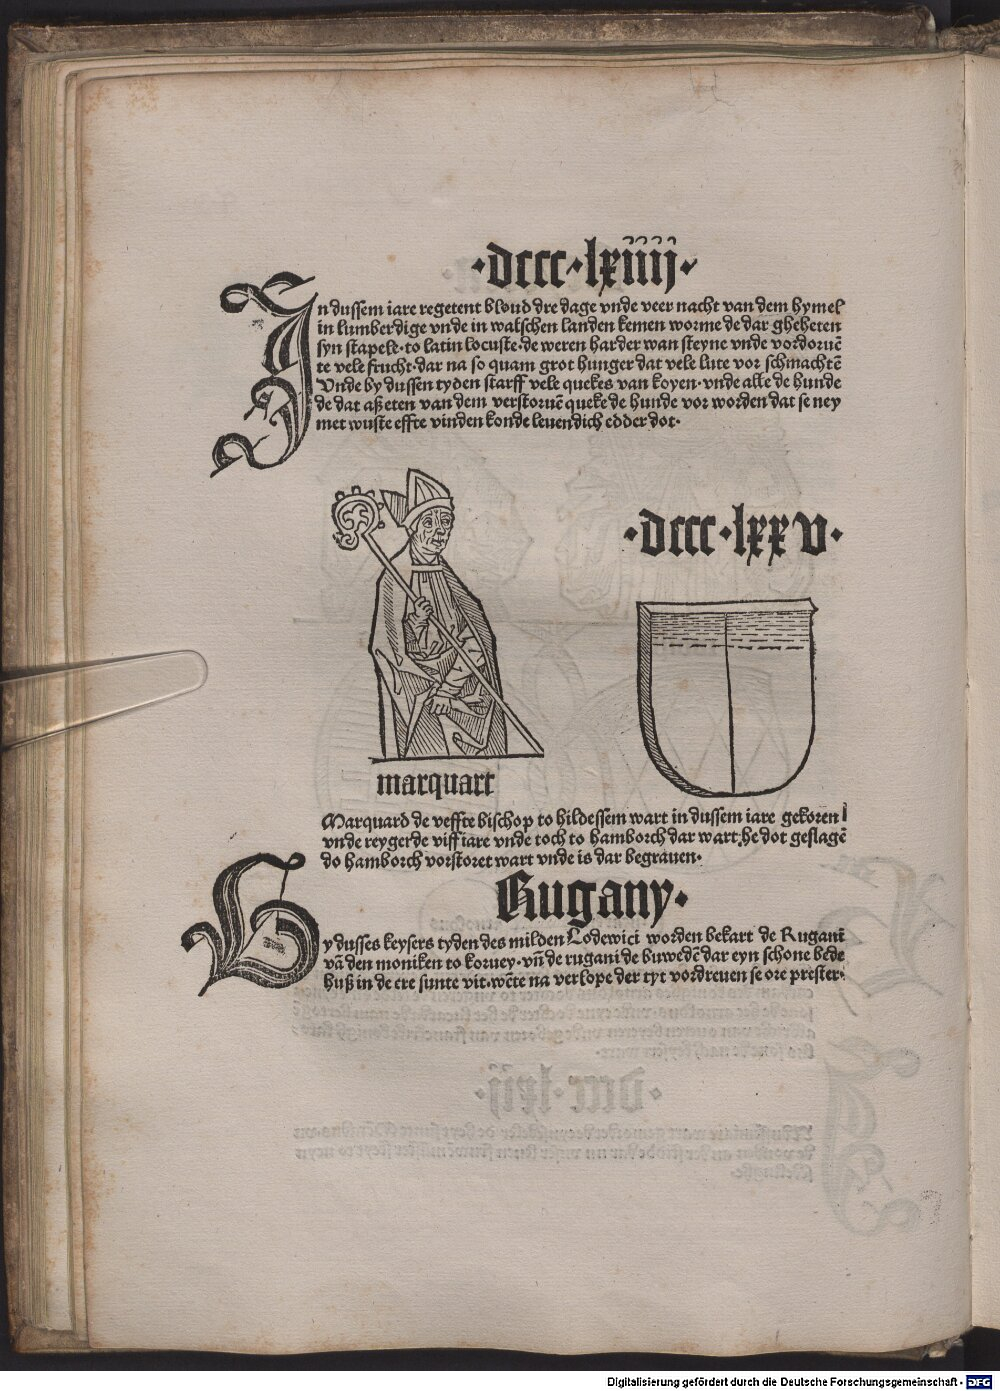 ·dccc·lxiiij·
In dussem iare regetent bloud dre dage vnde veer nacht van dem hymel
in lumberdige vnde in walschen landen kemen worme de dar gheheten
syn stapele·to latin locuste·de weren harder wan steyne vnde vordoruē
te vele frucht·dar na so quam grot hunger dat vele lute vor schmachtē
Vnde by dussen tyden starff vele quekes van koyen·vnde alle de hunde
de dat aß eten van dem verstoruē queke de hunde vor worden dat se ney
met wuste effte vinden konde leuendich edder dot·
·dccc·lxxv·
marquart
Marquard de veffte bischop to hildessem wart in dussem iare gekoren
vnde reygerde viff iare vnde toch to hamborch dar wart he dot geslagē
do hamborch vorstoret wart vnde is dar begrauen·
Rugany·
By dusses keysers tyden des milden Lodewici worden bekart de Rugani
vā den moniken to koruey·vn̄ de rugani de buwedē dar eyn schone bede
huß in de ere sunte vit·wēte na verlope der tyt vordreuen se ore prester·
Digitalisierung gefördert durch die Deutsche Forschungsgemeinschaft - DFG